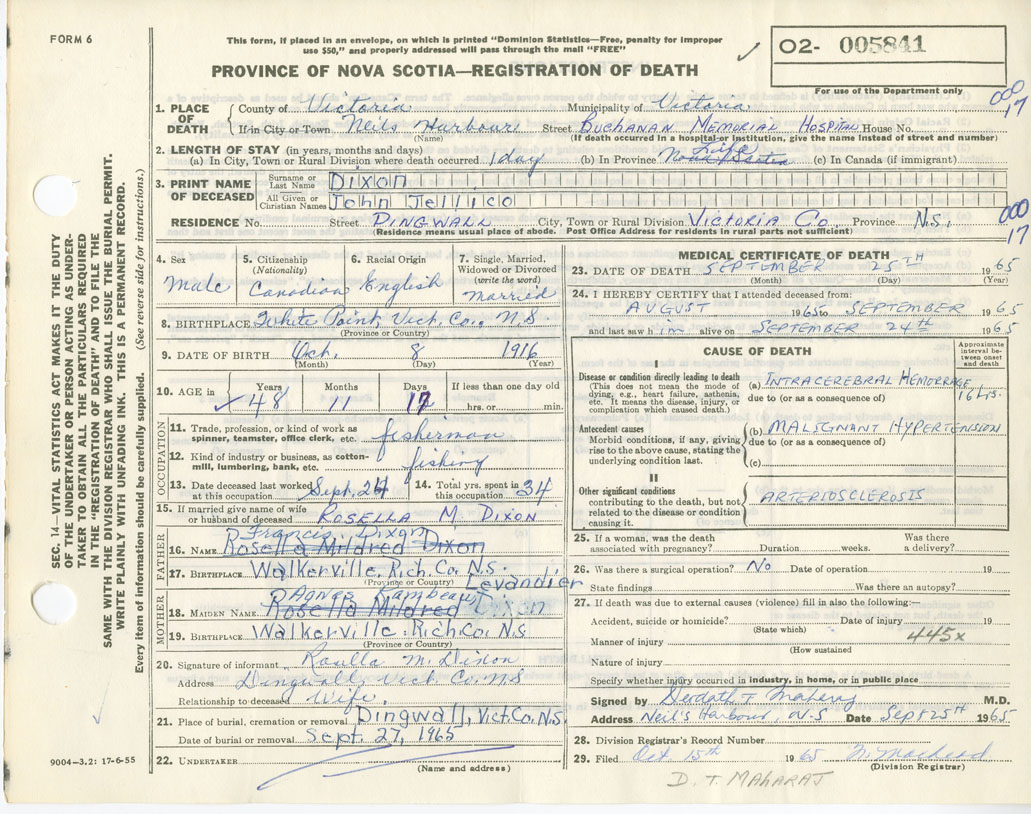 FORM 6
This form, if placed in an envelope, on which is printed "Dominion Statistics—Free, penalty for improper
use $50," and properly addressed will pass through the mail "FREE"
PROVINCE OF NOVA SCOTIA—REGISTRATION OF DEATH
O2- 005841
For use of the Department only
000
17
1. PLACE OF DEATH County of Victoria Municipality of Victoria
If in City or Town Neils Harbour Street BUCHANAN MEMORIAL HOSPITAL House No.
(Name) (If death occurred in a hospital or institution, give its name instead of street and number)
2. LENGTH OF STAY (in years, months and days)
Life
(a) In City, Town or Rural Division where death occurred 1 day (b) In Province Nova Scotia (c) In Canada (if immigrant)
3. PRINT NAME OF DECEASED Surname or Last Name Dixon
All Given or Christian Names John Jellico
RESIDENCE No. Street DINGWALL City, Town or Rural Division Victoria Co. Province N.S.
(Residence means usual place of abode. Post Office Address for residents in rural parts not sufficient)
000
17
4. Sex
Male
5. Citizenship
(Nationality)
Canadian
6. Racial Origin
English
7. Single, Married,
Widowed or Divorced
(write the word)
Married
8. BIRTHPLACE White Point Vict. Co., N S
(Province or Country)
9. DATE OF BIRTH Oct. 8 1916
(Month) (Day) (Year)
10. AGE in Years Months Days If less than one day old
48 11 17 hrs. or min.
OCCUPATION
11. Trade, profession, or kind of work as
spinner, teamster, office clerk, etc. fisherman
12. Kind of industry or business, as cotton-
mill, lumbering, bank, etc. fishing
13. Date deceased last worked
at this occupation Sept. 24
14. Total yrs. spent in
this occupation 34
15. If married give name of wife
or husband of deceased ROSELLA M. DIXON
FATHER
Francis Dixon
16. NAME Rosella Mildred Dixon
17. BIRTHPLACE Walkerville, Rich. Co. N.S.
(Province or Country) Levandier
MOTHER
Agnes
18. MAIDEN NAME Rosella Mildred Dixon
19. BIRTHPLACE Walkerville, Rich Co. N.S
(Province or Country)
20. Signature of informant M. Dixon
Address Dingwall, Vict. Co. N S
Relationship to deceased Wife
21. Place of burial, cremation or removal Dingwall, Vict. Co. N.S.
Date of burial or removal Sept. 27, 1965
22. UNDERTAKER
(Name and address)
MEDICAL CERTIFICATE OF DEATH
23. DATE OF DEATH SEPTEMBER 25TH 1965
(Month) (Day) (Year)
24. I HEREBY CERTIFY that I attended deceased from:
AUGUST 1965 to SEPTEMBER 1965
and last saw him alive on SEPTEMBER 24TH 1965
CAUSE OF DEATH
Approximate
interval be-
tween onset
and death
I
Disease or condition directly leading to death
(This does not mean the mode of
dying, e.g., heart failure, asthenia,
etc. It means the disease, injury, or
complication which caused death.)
(a) INTRACEREBRAL HEMORRAGE 16 hrs.
due to (or as a consequence of)
Antecedent causes
Morbid conditions, if any, giving
rise to the above cause, stating the
underlying condition last.
(b) MALIGNANT HYPERTENSION
due to (or as a consequence of)
(c)
II
Other significant conditions
contributing to the death, but not
related to the disease or condition
causing it.
ARTERIOSCLEROSIS
25. If a woman, was the death Was there
associated with pregnancy? Duration weeks. a delivery?
26. Was there surgical operation? No Date of operation 19
State findings Was there an autopsy?
27. If death was due to external causes (violence) fill in also the following:—
Accident, suicide or homicide? Date of injury 19
(State which)
445x
Manner of injury
(How sustained
Nature of injury
Specify whether injury occurred in industry, in home, or in public place
Signed by M.D.
Address Neil's Harbour, N.S Date Sept 25th 1965
28. Division Registrar's Record Number
29. Filed Oct 15th 1965
(Division Registrar)
D. T. MAHARAJ
SEC. 14—VITAL STATISTICS ACT MAKES IT THE DUTY
OF THE UNDERTAKER OR PERSON ACTING AS UNDER-
TAKER TO OBTAIN ALL THE PARTICULARS REQUIRED
IN THE "REGISTRATION OF DEATH" AND TO FILE THE
SAME WITH THE DIVISION REGISTRAR WHO SHALL ISSUE THE BURIAL PERMIT.
WRITE PLAINLY WITH UNFADING INK. THIS IS A PERMANENT RECORD.
Every item of information should be carefully supplied. (See reverse side for instructions.)
9004-3.2: 17-6-55